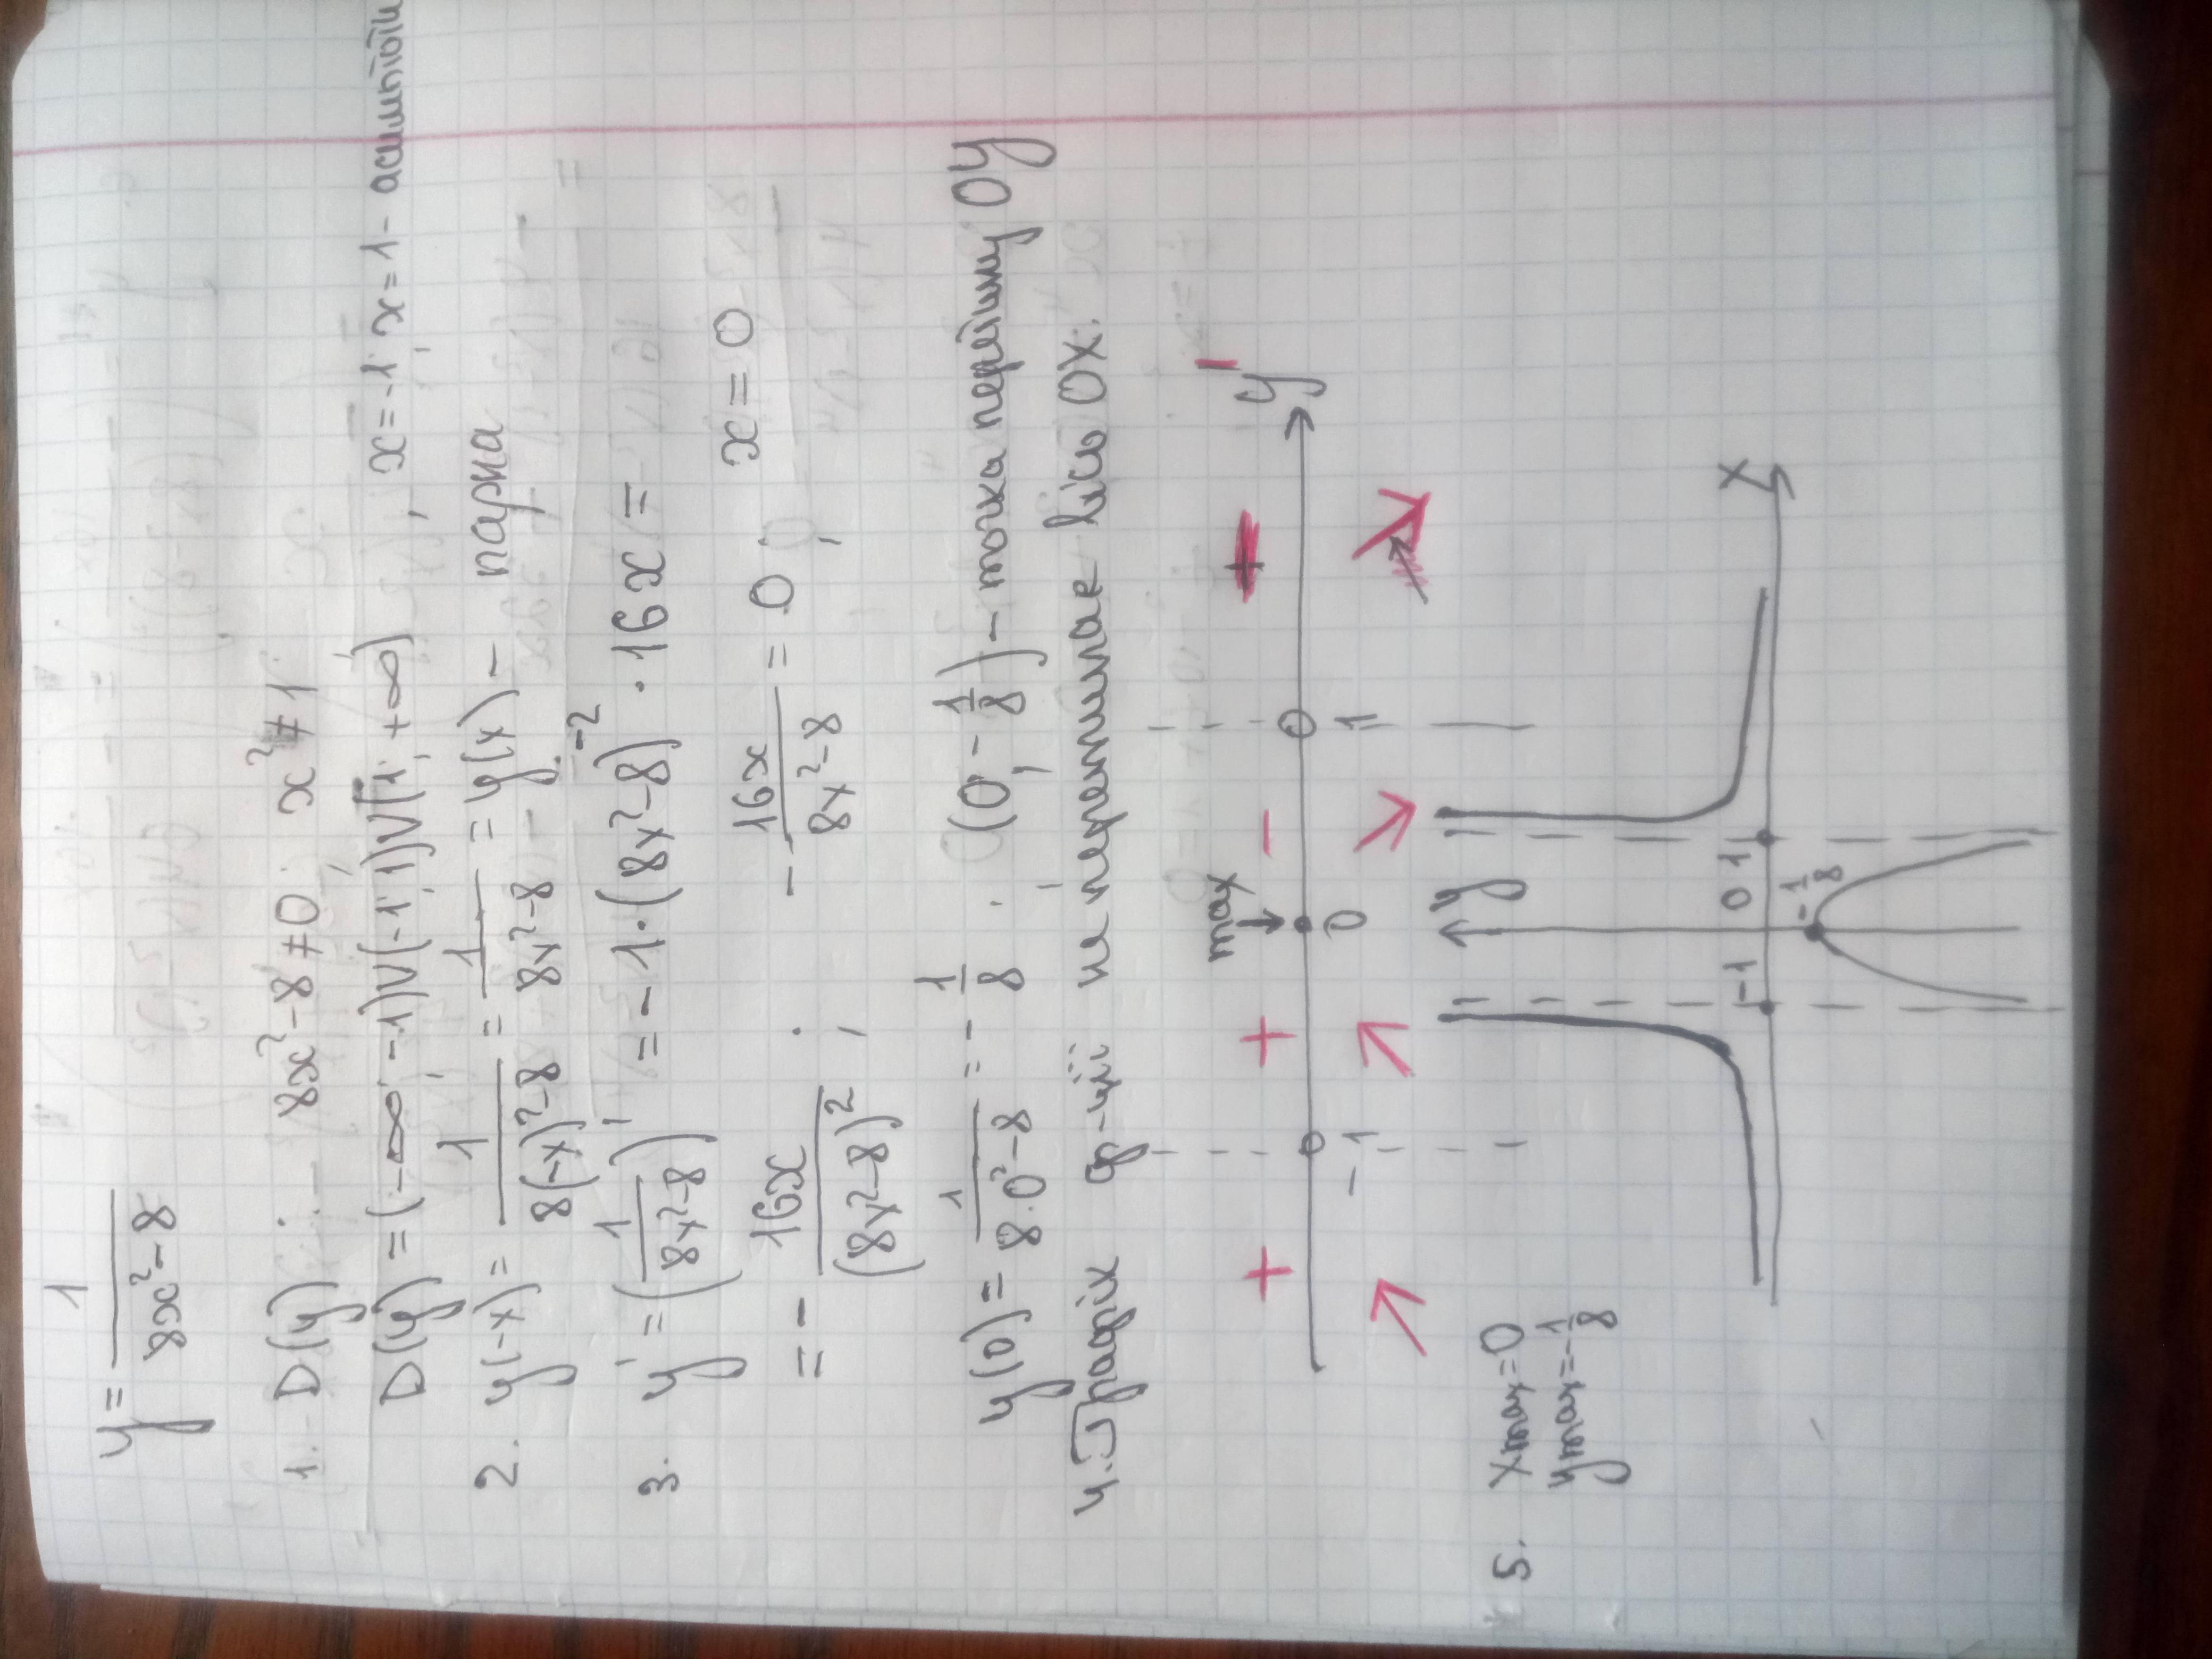 y = 1/(8x²-8)
1. D(y): 8x²-8≠0; x²≠1
D(y) = (-∞; -1)V(-1; 1)V(1; +∞), x=-1; x=1 -
2. y(-x) = 1/(8(-x)²-8) = 1/(8x²-8) = y(x) - парна
3. y' = (1/(8x²-8))' = -1·(8x²-8)⁻² · 16x =
= - 16x/(8x²-8)²; - 16x/(8x²-8) = 0; x=0
y(0) = 1/(8·0²-8) = - 1/8. (0; -1/8) - точка перетину OY
4. Графік ф-ції не перетинає вісь OX.
max
+ + - y'
-1 0 1
5. xmax=0
ymax=-1/8
y
x
-1 0 1
-1/8